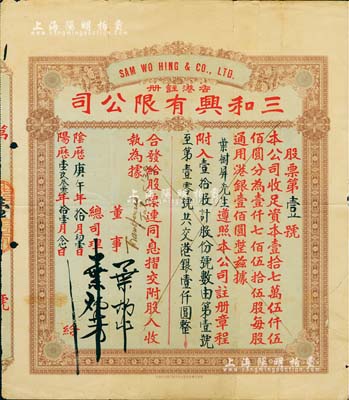 上海陽明拍賣
SAM WO HING & CO., LTD.
香港註冊
三和興有限公司
股票第壹號
本公司收足資本壹拾七萬伍仟伍
佰圓分為壹仟七佰伍拾伍股每股
通用港銀壹佰圓整茲據
葉樹屏先生遵照本公司註冊章程
附入壹拾股計股份號數由第壹號
至第壹零號共交港銀壹仟圓整
合發給股票連同息摺交附股人收
執為據
董事
總司理
陰歷庚午年拾月初壹日
陽歷壹玖叁零年拾壹月念日
給
上海陽明拍賣